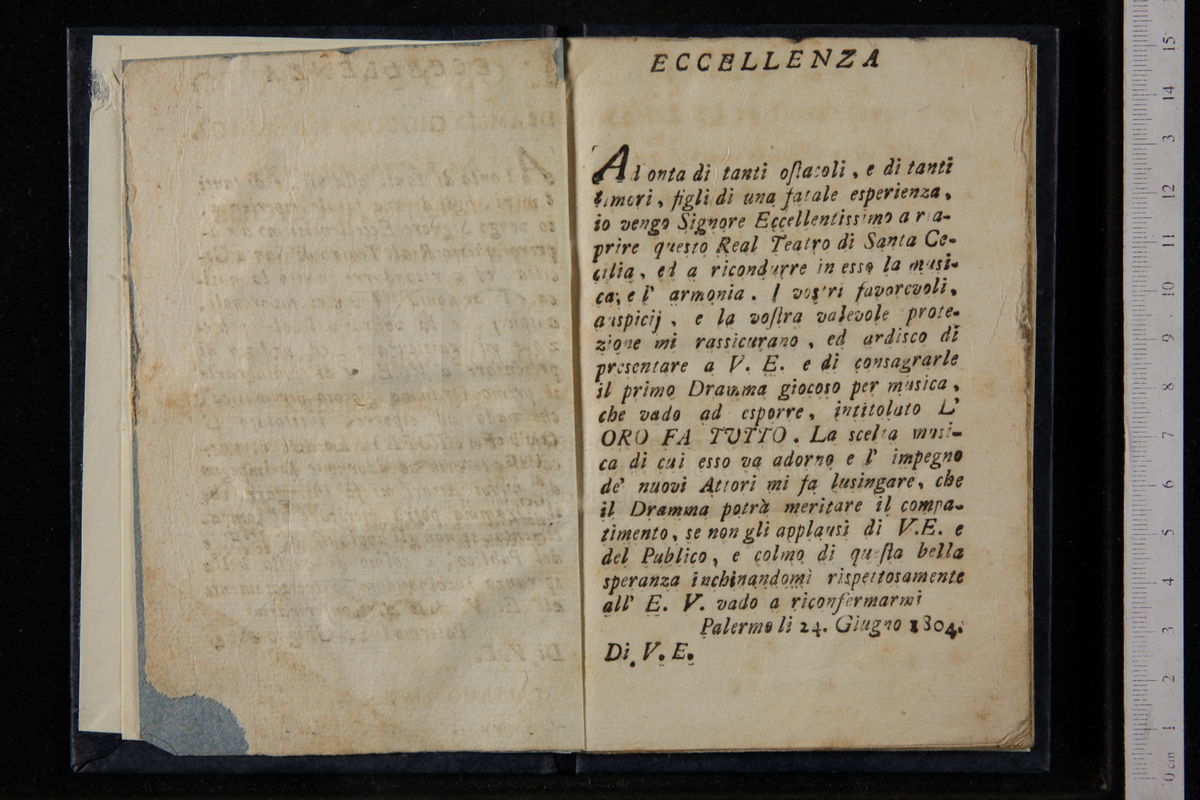 ECCELLENZA
Ad onta di tanti ostacoli, e di tanti
timori, figli di una fatale esperienza,
io vengo Signore Eccellentissimo a ria-
prire questo Real Teatro di Santa Ce-
cilia, ed a ricondurre in esso la musi-
ca, e l' armonia. I vostri favorevoli,
auspicij, e la vostra valevole prote-
zione mi rassicurano, ed ardisco di
presentare a V. E. e di consagrarle
il primo Dramma giocoso per musica,
che vado ad esporre, intitolato L'
ORO FA TUTTO. La scelta musi-
ca di cui esso va adorno e l' impegno
de' nuovi Attori mi fa lusingare, che
il Dramma potrà meritare il compa-
timento, se non gli applausi di V.E. e
del Publico, e colmo di questa bella
speranza inchinandomi rispettosamente
all' E. V. vado a riconfermarmi
Palermo li 24. Giugno 1804.
Di V. E.
0 cm 1 2 3 4 5 6 7 8 9 10 11 12 3 14 15